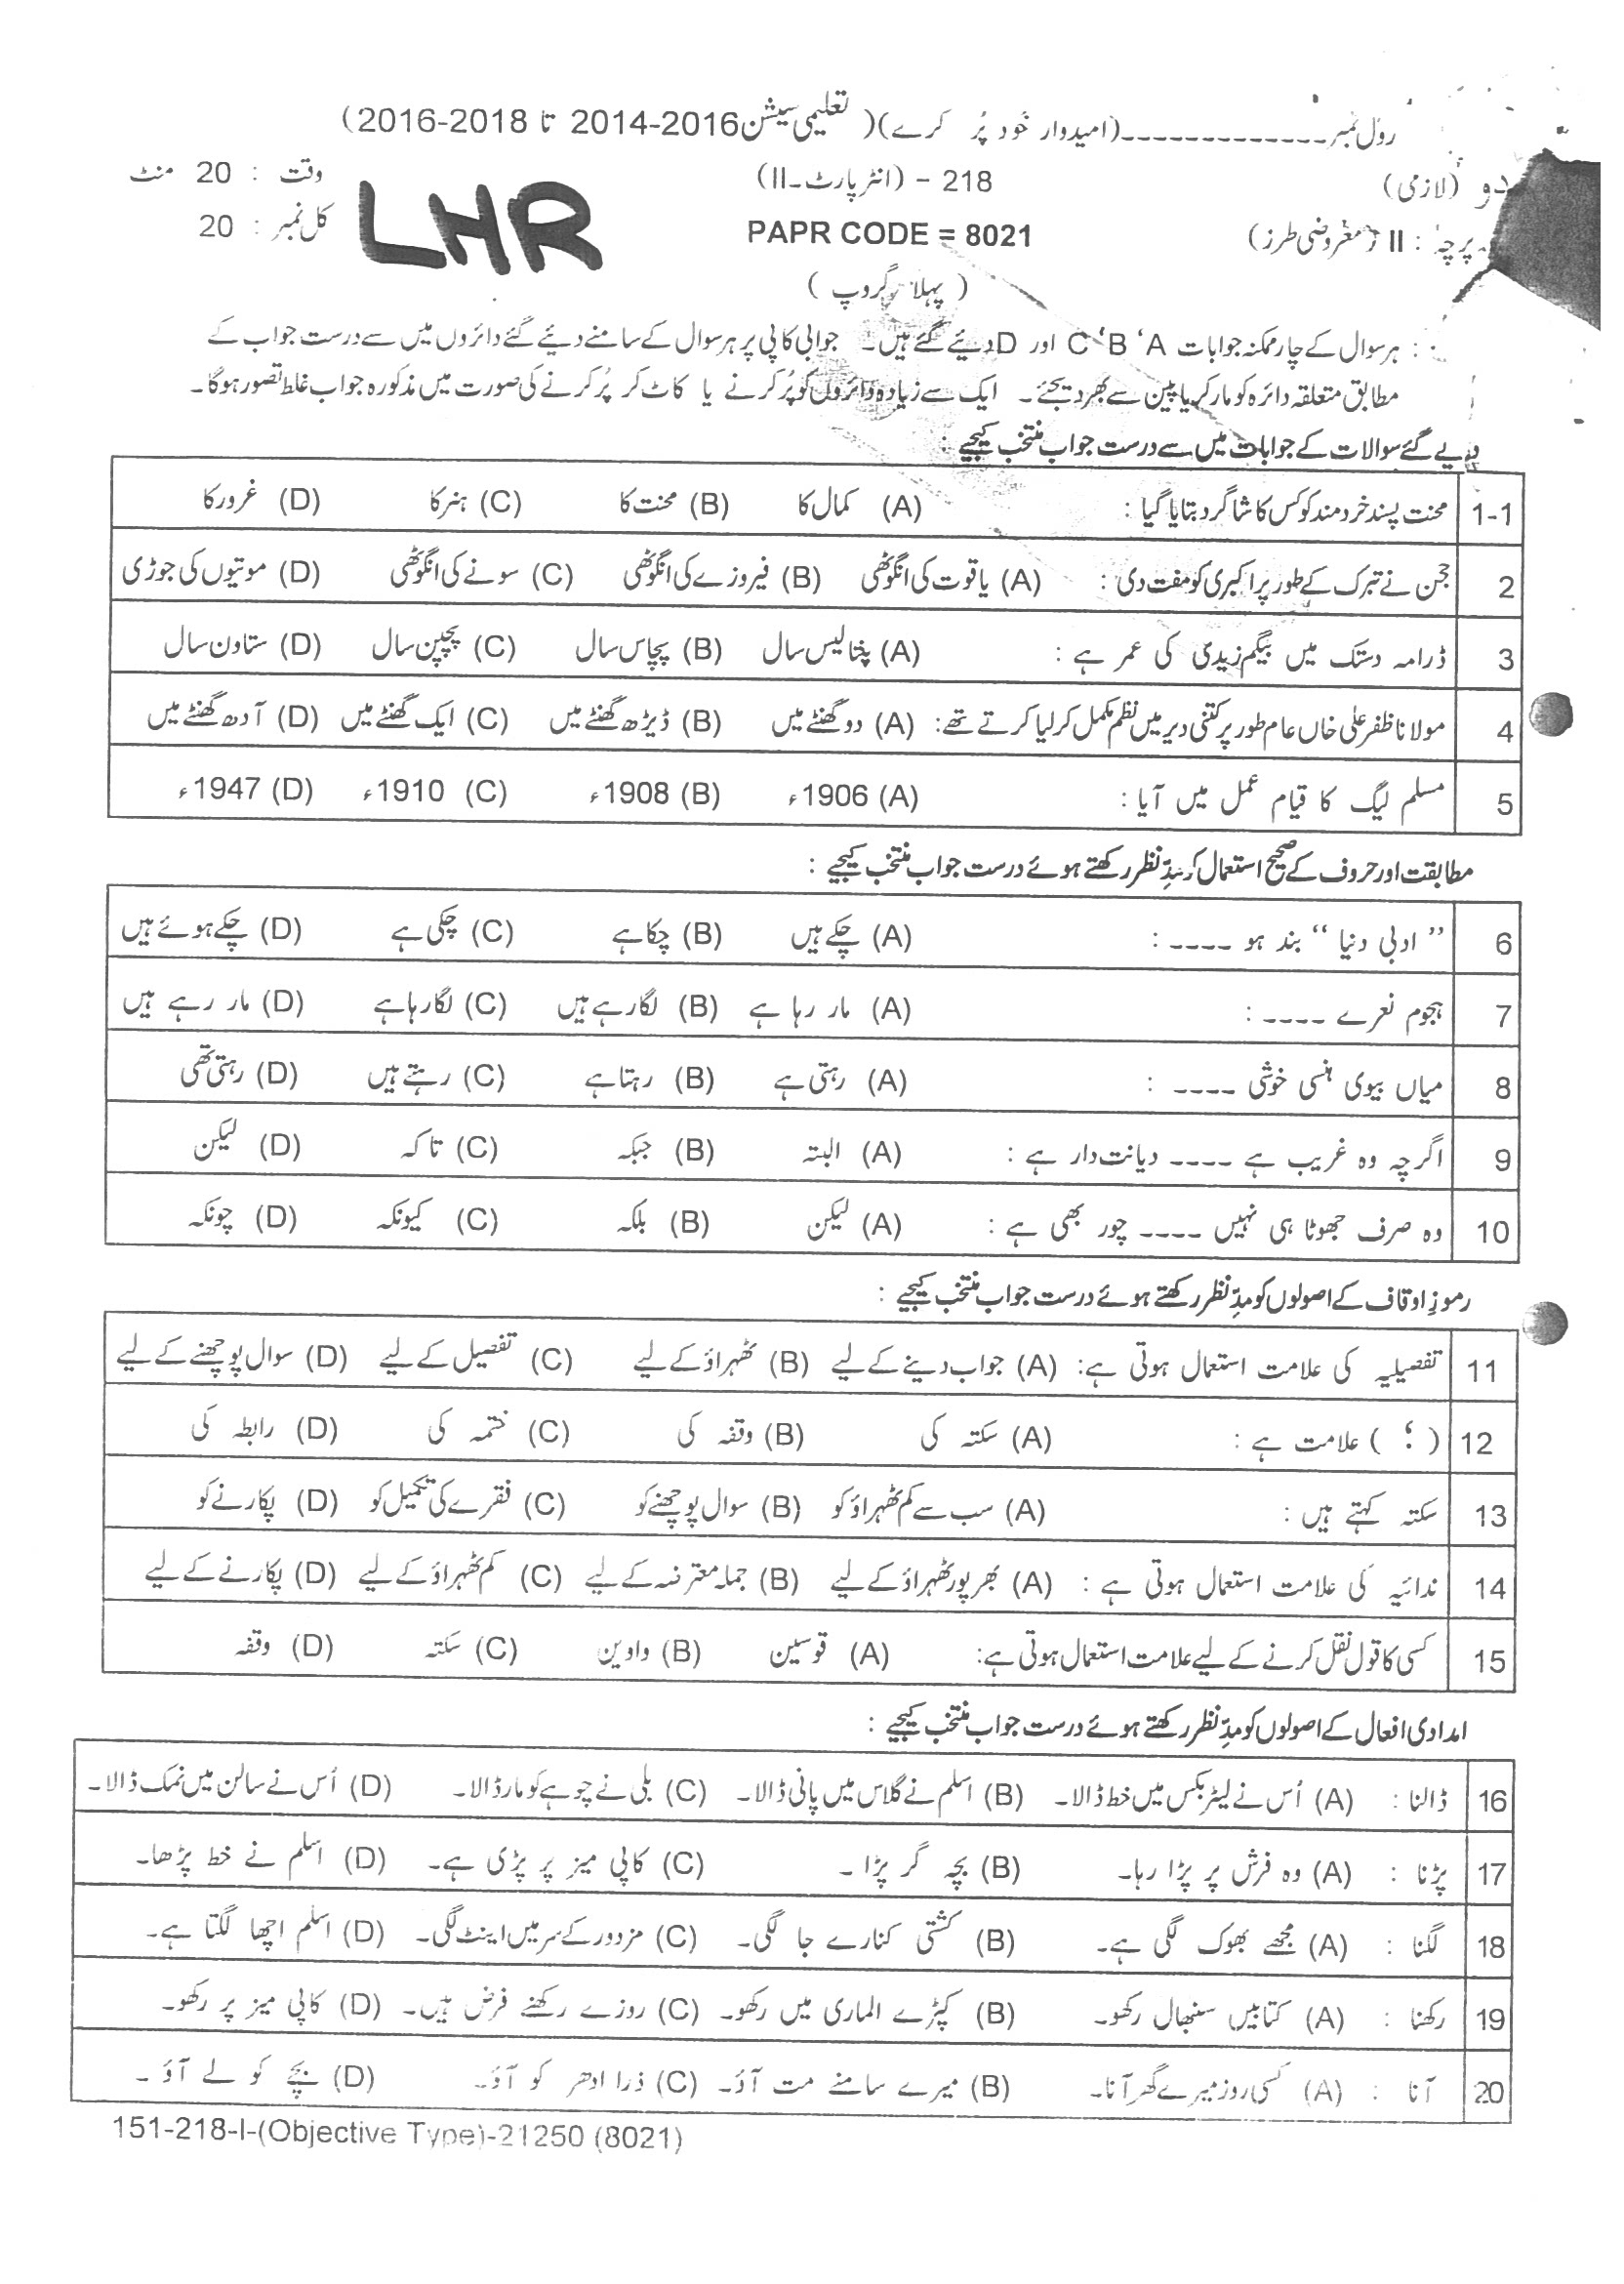 رول نمبر ------------- (امیدوار خود پُر کرے) ( تعلیمی سیشن 2014-2016 تا 2016-2018)
(لازمی) 218 - (انٹر پارٹ-II) وقت : 20 منٹ
پرچہ : II (معروضی طرز) PAPR CODE = 8021 LHR کل نمبر : 20
( پہلا گروپ )
: ہر سوال کے چار ممکنہ جوابات A ‘B ‘C اور D دیئے گئے ہیں۔ جوابی کاپی پر ہر سوال کے سامنے دیئے گئے دائروں میں سے درست جواب کے
مطابق متعلقہ دائرہ کو مارکر یا پین سے بھر دیجئے۔ ایک سے زیادہ دائروں کو پُر کرنے یا کاٹ کر پُر کرنے کی صورت میں مذکورہ جواب غلط تصور ہوگا۔
دیے گئے سوالات کے جوابات میں سے درست جواب منتخب کیجیے :
1-1 محنت پسند خردمند کو کس کا شاگرد بتایا گیا : (A) کمال کا (B) محنت کا (C) ہنر کا (D) غرور کا
2 جن نے تبرک کے طور پر اکبری کو مفت دی : (A) یاقوت کی انگوٹھی (B) فیروزے کی انگوٹھی (C) سونے کی انگوٹھی (D) موتیوں کی جوڑی
3 ڈرامہ دستک میں بیگم زیدی کی عمر ہے : (A) پنتالیس سال (B) پچاس سال (C) پچپن سال (D) ستاون سال
4 مولانا ظفر علی خاں عام طور پر کتنی دیر میں نظم مکمل کر لیا کرتے تھے: (A) دو گھنٹے میں (B) ڈیڑھ گھنٹے میں (C) ایک گھنٹے میں (D) آدھ گھنٹے میں
5 مسلم لیگ کا قیام عمل میں آیا : (A) 1906ء (B) 1908ء (C) 1910ء (D) 1947ء
مطابقت اور حروف کے صحیح استعمال کو مدِّنظر رکھتے ہوئے درست جواب منتخب کیجیے :
6 ” ادبی دنیا “ بند ہو ---- : (A) چکے ہیں (B) چکا ہے (C) چکی ہے (D) چکے ہوئے ہیں
7 ہجوم نعرے ---- : (A) مار رہا ہے (B) لگا رہے ہیں (C) لگا رہا ہے (D) مار رہے ہیں
8 میاں بیوی ہنسی خوشی ---- : (A) رہتی ہے (B) رہتا ہے (C) رہتے ہیں (D) رہتی تھی
9 اگرچہ وہ غریب ہے ---- دیانت دار ہے : (A) البتہ (B) جبکہ (C) تاکہ (D) لیکن
10 وہ صرف جھوٹا ہی نہیں ---- چور بھی ہے : (A) لیکن (B) بلکہ (C) کیونکہ (D) چونکہ
رموزِ اوقاف کے اصولوں کو مدِّنظر رکھتے ہوئے درست جواب منتخب کیجیے :
11 تفصیلیہ کی علامت استعمال ہوتی ہے: (A) جواب دینے کے لیے (B) ٹھہراؤ کے لیے (C) تفصیل کے لیے (D) سوال پوچھنے کے لیے
12 ( ؛ ) علامت ہے : (A) سکتہ کی (B) وقفہ کی (C) ختمہ کی (D) رابطہ کی
13 سکتہ کہتے ہیں : (A) سب سے کم ٹھہراؤ کو (B) سوال پوچھنے کو (C) فقرے کی تکمیل کو (D) پکارنے کو
14 ندائیہ کی علامت استعمال ہوتی ہے : (A) بھرپور ٹھہراؤ کے لیے (B) جملہ معترضہ کے لیے (C) کم ٹھہراؤ کے لیے (D) پکارنے کے لیے
15 کسی کا قول نقل کرنے کے لیے علامت استعمال ہوتی ہے: (A) قوسین (B) واوین (C) سکتہ (D) وقفہ
امدادی افعال کے اصولوں کو مدِّنظر رکھتے ہوئے درست جواب منتخب کیجیے :
16 ڈالنا : (A) اُس نے لیٹر بکس میں خط ڈالا۔ (B) اسلم نے گلاس میں پانی ڈالا۔ (C) بلی نے چوہے کو مار ڈالا۔ (D) اُس نے سالن میں نمک ڈالا۔
17 پڑنا : (A) وہ فرش پر پڑا رہا۔ (B) بچہ گر پڑا ۔ (C) کاپی میز پر پڑی ہے۔ (D) اسلم نے خط پڑھا۔
18 لگنا : (A) مجھے بھوک لگی ہے۔ (B) کشتی کنارے جا لگی۔ (C) مزدور کے سر میں اینٹ لگی۔ (D) اسلم اچھا لگتا ہے۔
19 رکھنا : (A) کتابیں سنبھال رکھو۔ (B) کپڑے الماری میں رکھو۔ (C) روزے رکھنے فرض ہیں۔ (D) کاپی میز پر رکھو۔
20 آنا : (A) کسی روز میرے گھر آنا۔ (B) میرے سامنے مت آؤ۔ (C) ذرا ادھر کو آؤ۔ (D) بچے کو لے آؤ ۔
151-218-I-(Objective Type)-21250 (8021)